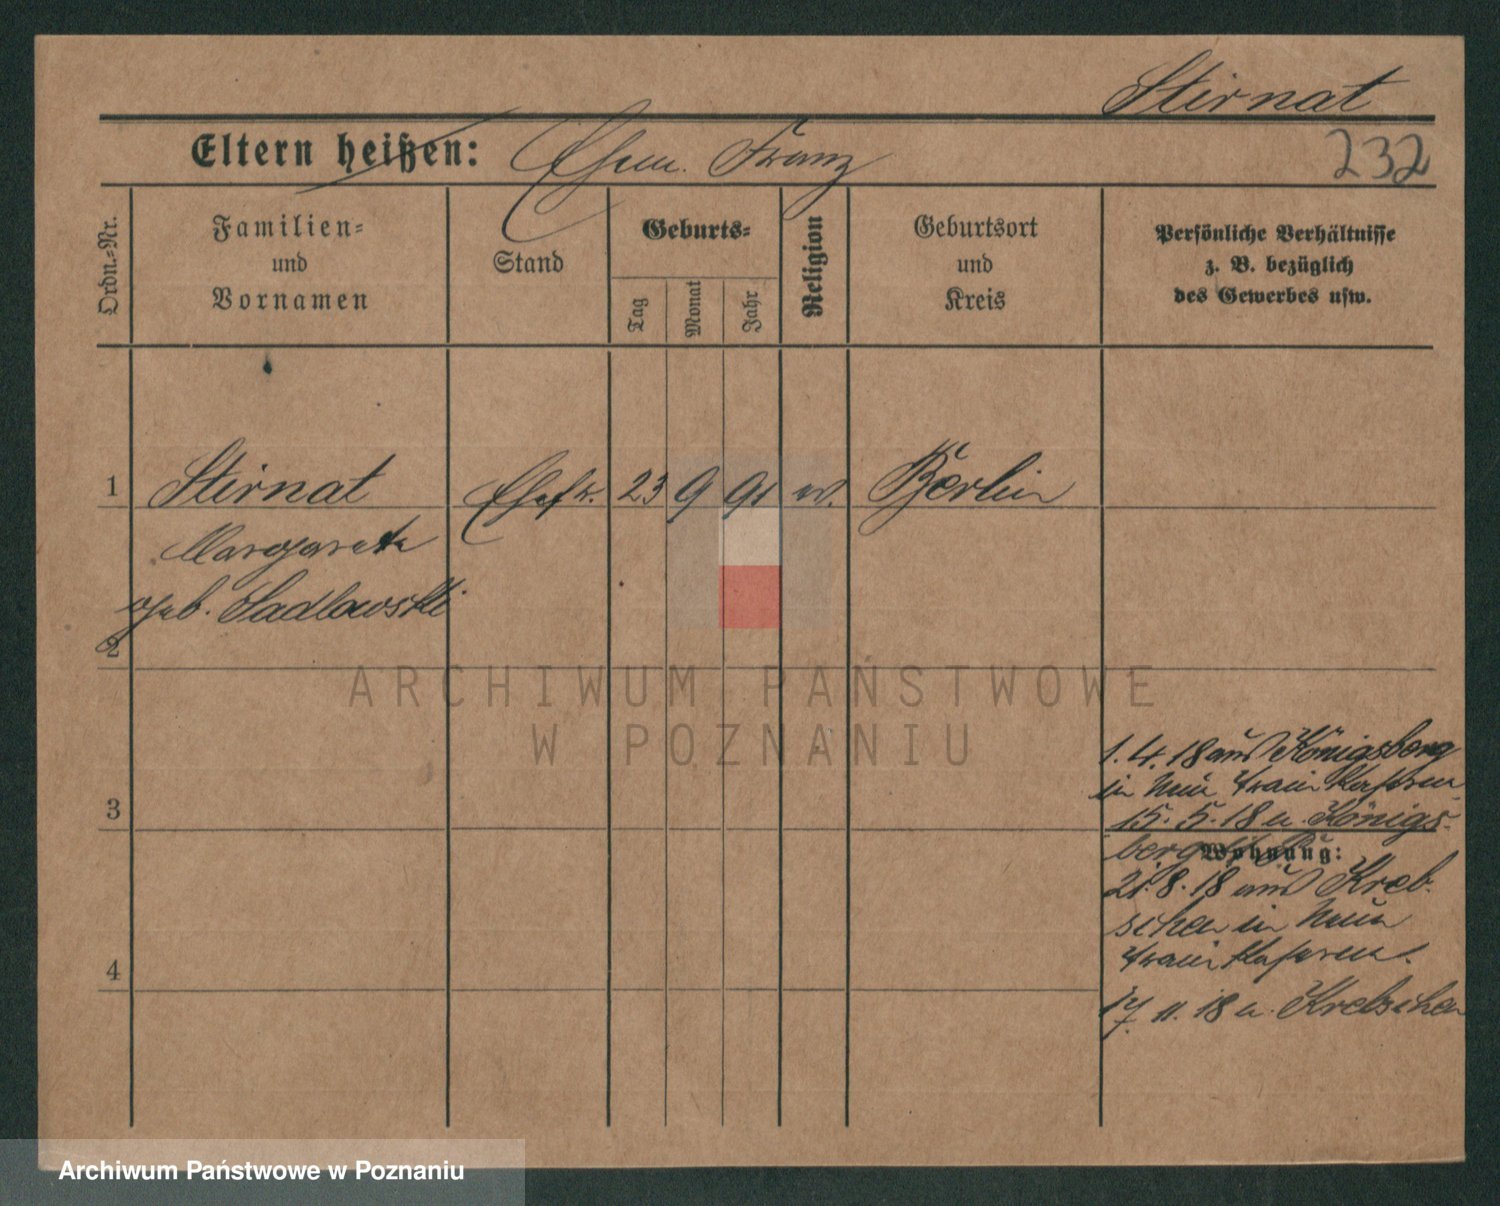 Stirnat
Eltern heißen: Ehem. Franz
232
Ordn.-Nr.
Familien-
und
Vornamen
Stand
Geburts-
Tag
Monat
Jahr
Religion
Geburtsort
und
Kreis
Persönliche Verhältnisse
z. B. bezüglich
des Gewerbes usw.
1 Stirnat Ehefr. 23 9 91 ev. Berlin
Margarete
geb. Sadlowski
2
ARCHIWUM PAŃSTWOWE
W POZNANIU
1. 4. 18 aus Königsberg
in Train Kaserne
3
15. 5. 18 n. Königs-
berg
Wohnung:
21. 8. 18 aus Kreb-
schen in
Train Kaserne.
4
17. 11. 18 n. Krebschen
Archiwum Państwowe w Poznaniu